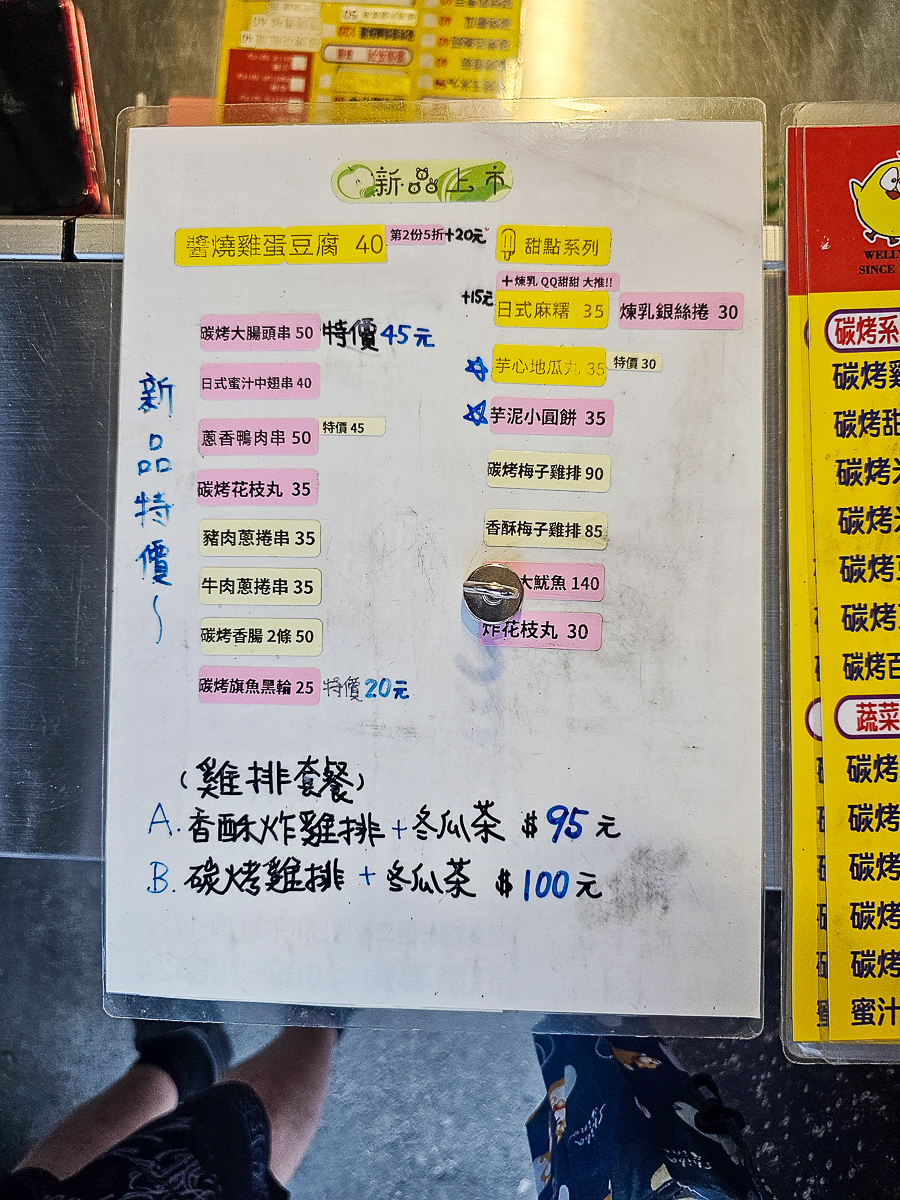 新品上市
醬燒雞蛋豆腐 40 第2份5折+20元
甜點系列
+煉乳 QQ甜甜 大推!!
+15元 日式麻糬 35 煉乳銀絲捲 30
芋心地瓜丸 35 特價 30
芋泥小圓餅 35
碳烤梅子雞排 90
香酥梅子雞排 85
大魷魚 140
炸花枝丸 30
新品特價~
碳烤大腸頭串 50 特價45元
日式蜜汁中翅串 40
蔥香鴨肉串 50 特價 45
碳烤花枝丸 35
豬肉蔥捲串 35
牛肉蔥捲串 35
碳烤香腸 2條 50
碳烤旗魚黑輪 25 特價20元
(雞排套餐)
A. 香酥炸雞排+冬瓜茶 $95元
B. 碳烤雞排+冬瓜茶 $100元
WELL
SINCE
碳烤系
碳烤雞
碳烤甜
碳烤米
碳烤米
碳烤
碳烤
碳烤百
蔬菜
碳烤
碳烤
碳烤
碳烤
碳烤
蜜汁